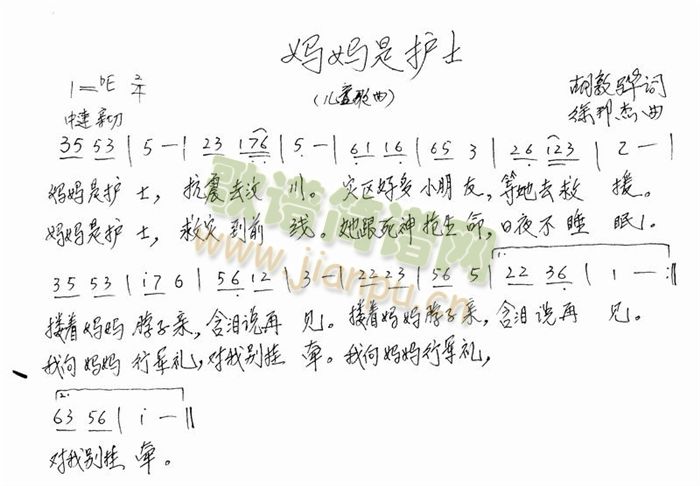 妈妈是护士
(儿童歌曲)
1=bE 2/4
中速 亲切
胡敦骅词
徐邦杰曲
35 53 | 5 — | 23 176 | 5 — | 61 16 | 65 3 | 26 123 | 2 — |
妈妈是护士，抗震去汶川。灾区好多小朋友，等她去救援。
妈妈是护士，救灾到前线。她跟死神抢生命，日夜不睡眠。
35 53 | i7 6 | 56 12 | 3 — | 22 23 | 56 5 | 22 36 | 1 — :||
搂着妈妈脖子亲，含泪说再见。搂着妈妈脖子亲，含泪说再见。
我向妈妈行军礼，对我别挂牵。我向妈妈行军礼，
2.
63 56 | i — ||
对我别挂牵。
歌谱简谱网
www.jianpu.cn